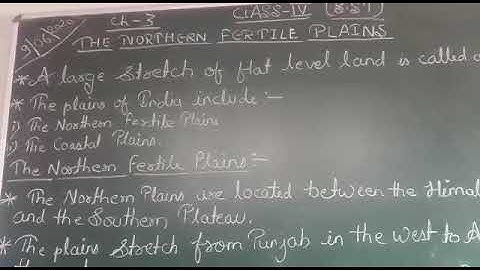 9/06/2020 Ch-3 CLASS-IV (S.St)
THE NORTHERN FERTILE PLAINS
* A large stretch of flat level land is called a
* The plains of India include:-
i) The Northern Fertile Plains
ii) The Coastal Plains.
The Northern Fertile Plains:-
* The Northern Plains are located between the Himal
and the Southern Plateau.
* The plains stretch from Punjab in the West to A